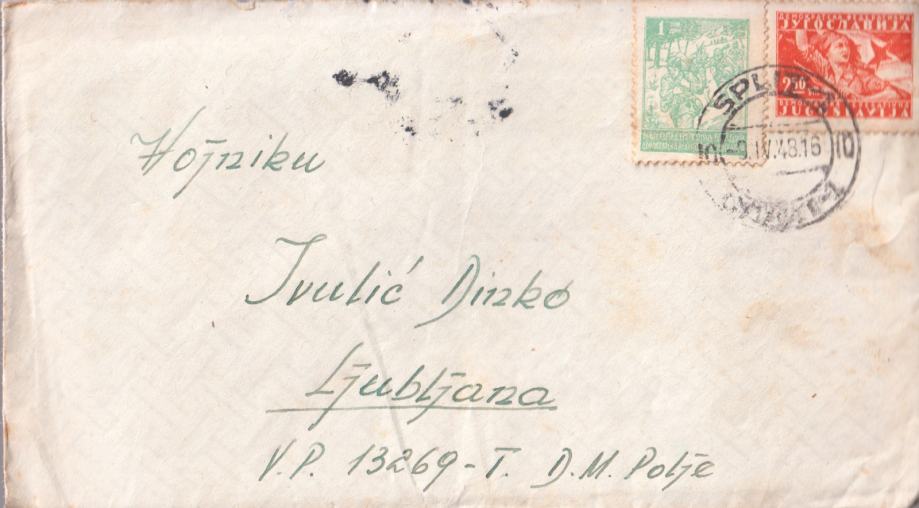 1
ЈУГОСЛАВИЈА
2.50
JUGOSLAVIJA
SPLIT-1
10 -9.IV.48.16 10
Vojniku
Ivulić Dinko
Ljubljana
V.P. 13269-T. D.M. Polje